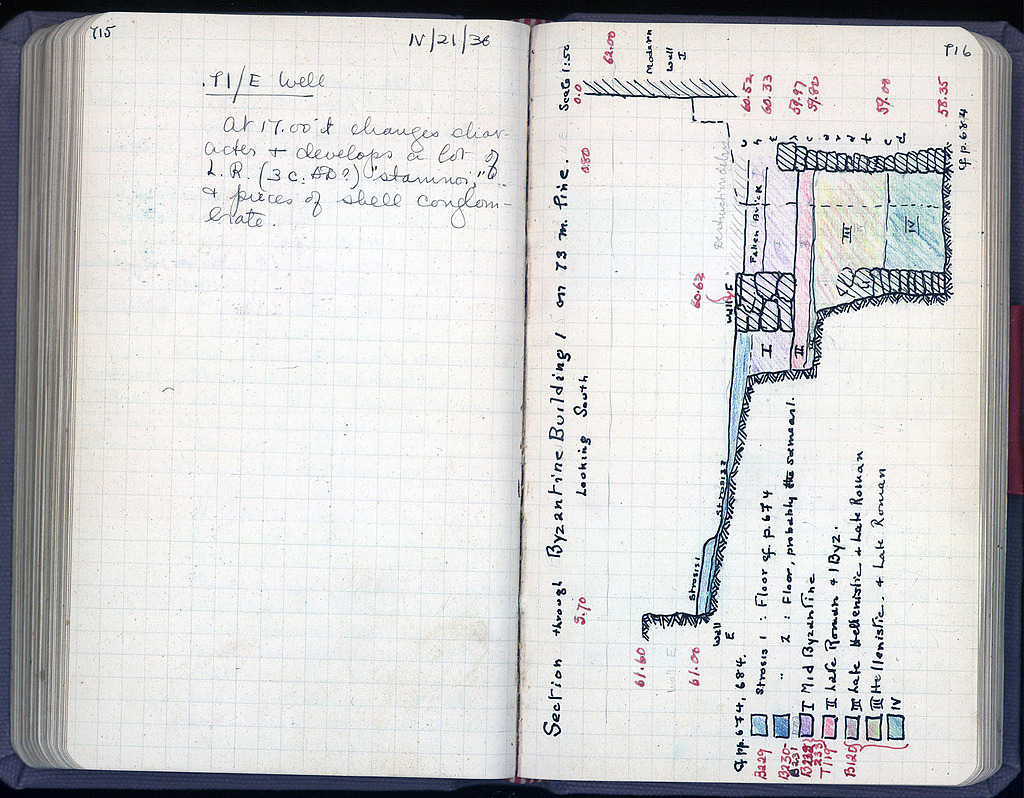 715
IV/21/36
TI/E Well
At 17.00 it changes char-
acter & develops a lot of
L.R. (3 c. AD?) "stamnoi,"
& pieces of shell conglom-
erate.
716
Section through Byzantine Building 1 on 73 m. line.
Scale 1:50
Looking South
5.70
0.80
0.0
62.00
Modern
Wall
I
61.60
61.00
Wall E
Wall
E
Strosis 1
Strosis 2
60.62
Wall F
Destruction debris
Fallen Brick
60.52
60.33
59.97
59.80
59.00
58.35
I
II
III
IV
I
II
III
cf p. 684
cf pp. 674, 684.
B229 Strosis 1 : Floor cf. p. 674
B230- " 2 : Floor, probably the same as 1.
B231
B232 I Mid Byzantine
233
T119 II Late Roman & 1 Byz.
B120 III Late Hellenistic & Late Roman
III Hellenistic & Late Roman
IV